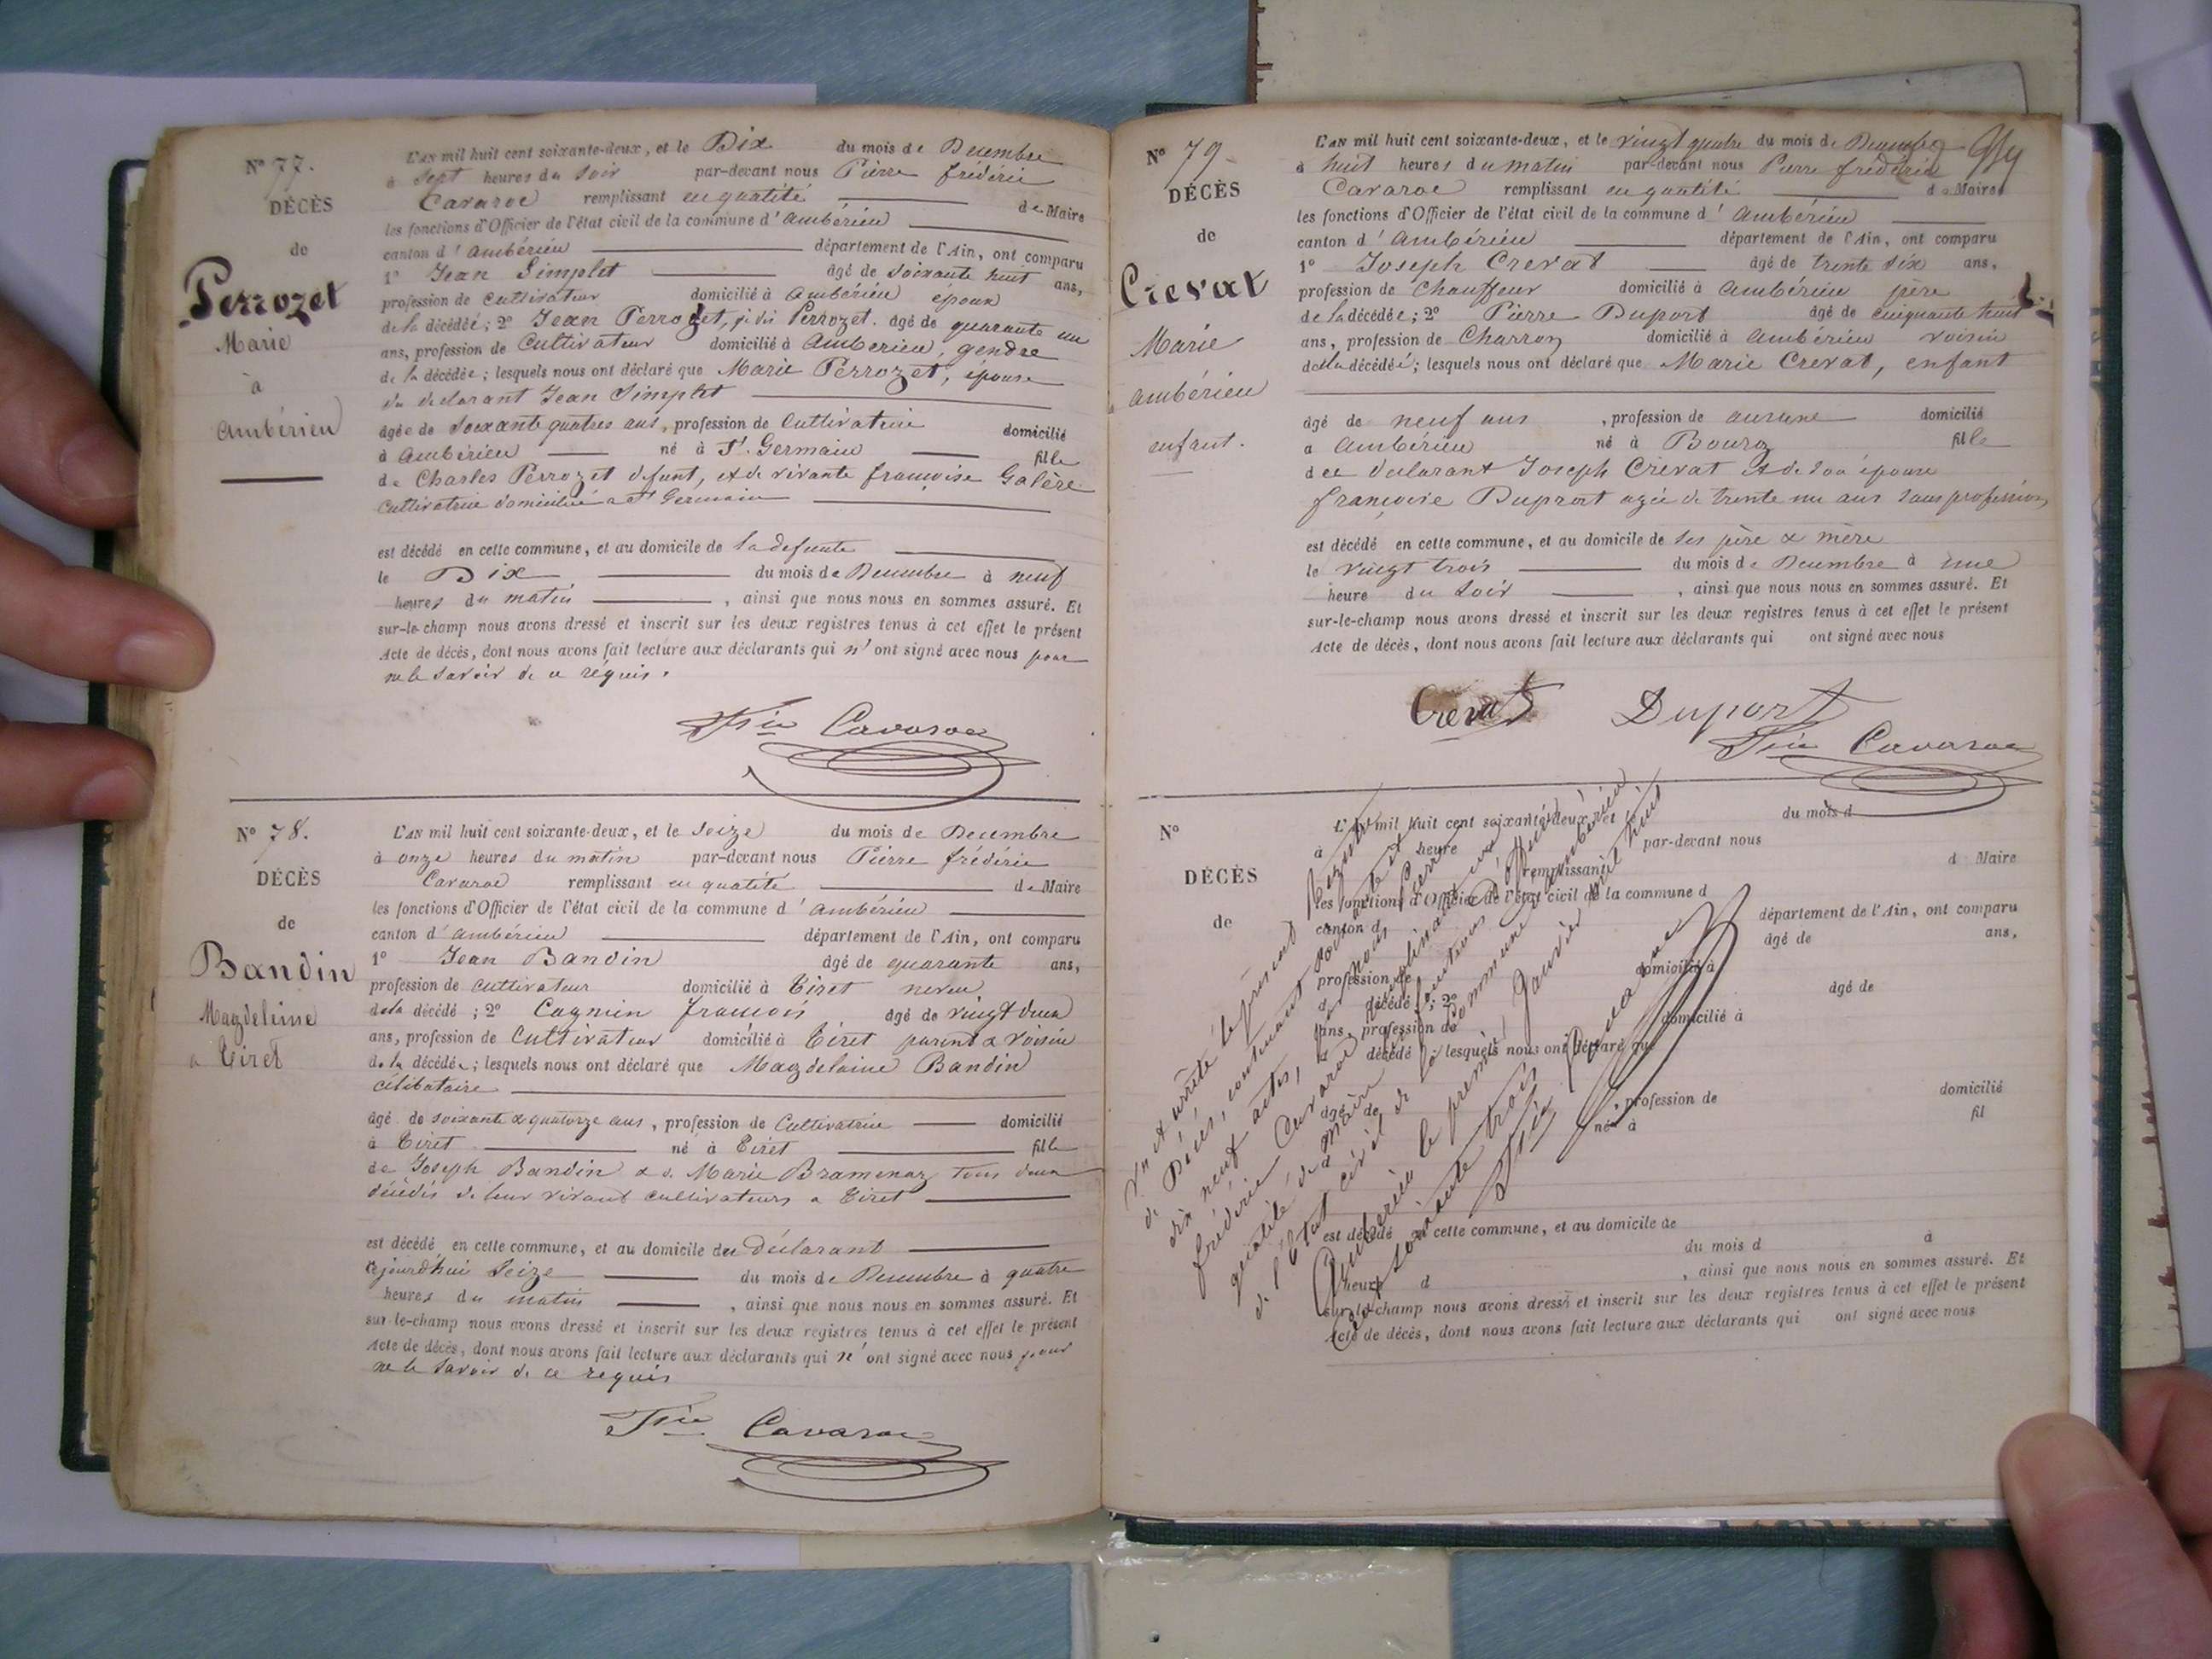 N° 77.
DÉCÈS
de
Perrozet
Marie
à
Ambérieu
L'AN mil huit cent soixante-deux, et le Dix du mois de Decembre
à Sept heures du Soir par-devant nous Pierre frédéric
Cavaroc remplissant en qualité de Maire
les fonctions d'Officier de l'état civil de la commune d'Ambérieu
canton d'Ambérieu département de l'Ain, ont comparu
1° Jean Simplet âgé de Soixante huit ans,
profession de Cultivateur domicilié à Ambérieu époux
de la décédée; 2° Jean Perrozet, je dis Perrozet. âgé de quarante un
ans, profession de Cultivateur domicilié à Ambérieu, gendre
de la décédée; lesquels nous ont déclaré que Marie Perrozet, épouse
du declarant Jean Simplet
âgée de Soixante quatres ans, profession de Cultivatrice domicilié
à Ambérieu né à St. Germain fille
de Charles Perrozet défunt, et de vivante françoise Galère
Cultivatrice domiciliée a St Germain
est décédé en cette commune, et au domicile de la defunte
le Dix du mois de Decembre à neuf
heures du matin, ainsi que nous nous en sommes assuré. Et
sur-le-champ nous avons dressé et inscrit sur les deux registres tenus à cet effet le présent
Acte de décès, dont nous avons fait lecture aux déclarants qui n'ont signé avec nous pour
ne le savoir de ce réquis.
Fric Cavaroc
N° 78.
DÉCÈS
de
Bandin
Magdeleine
a Tiret
L'AN mil huit cent soixante-deux, et le Seize du mois de Decembre
à onze heures du matin par-devant nous Pierre frédéric
Cavaroc remplissant en qualité de Maire
les fonctions d'Officier de l'état civil de la commune d'Ambérieu
canton d'Ambérieu département de l'Ain, ont comparu
1° Jean Bandin âgé de quarante ans,
profession de Cultivateur domicilié à Tiret neveu
de la décédé; 2° Cagnin françois âgé de vingt deux
ans, profession de Cultivateur domicilié à Tiret parent & voisin
de la décédée; lesquels nous ont déclaré que Magdelaine Bandin
célibataire
âgé de soixante & quatorze ans, profession de Cultivatrice domicilié
à Tiret né à Tiret fille
de Joseph Bandin & d. Marie Bramenaz tous deux
décédés de leur vivant cultivateurs a Tiret
est décédé en cette commune, et au domicile du déclarant
cejourd'hui Seize du mois de Decembre à quatre
heures du matin, ainsi que nous nous en sommes assuré. Et
sur-le-champ nous avons dressé et inscrit sur les deux registres tenus à cet effet le présent
Acte de décès, dont nous avons fait lecture aux déclarants qui n'ont signé avec nous pour
ne le savoir de ce requis
Fric Cavaroc
N° 79.
DÉCÈS
de
Crevat
Marie
a Ambérieu
enfant.
L'AN mil huit cent soixante-deux, et le vingt quatre du mois de Decembre
à huit heures du matin par-devant nous Pierre frédéric
Cavaroc remplissant en qualité de Maire
les fonctions d'Officier de l'état civil de la commune d'Ambérieu
canton d'Ambérieu département de l'Ain, ont comparu
1° Joseph Crevat âgé de trente six ans,
profession de Chauffeur domicilié à Ambérieu père
de la décédée; 2° Pierre Duport âgé de Cinquante huit
ans, profession de Charron domicilié à Ambérieu voisin
de la décédée; lesquels nous ont déclaré que Marie Crevat, enfant
âgé de neuf ans, profession de aucune domicilié
a Ambérieu né à Bourg fille
de ce declarant Joseph Crevat et de son épouse
françoise Duport agée de trente un ans sans profession
est décédé en cette commune, et au domicile de ses père & mère
le vingt trois du mois de Decembre à une
heure du Soir, ainsi que nous nous en sommes assuré. Et
sur-le-champ nous avons dressé et inscrit sur les deux registres tenus à cet effet le présent
Acte de décès, dont nous avons fait lecture aux déclarants qui ont signé avec nous
Crevat Duport
Fric Cavaroc
N°
DÉCÈS
de
L'AN mil huit cent soixante-deux, et le du mois d
à heure par-devant nous
remplissant d Maire
les fonctions d'Officier de l'état civil de la commune d
canton d département de l'Ain, ont comparu
âgé de ans,
profession de domicilié à
d décédé; 2° âgé de
ans, profession de domicilié à
d décédé; lesquels nous ont déclaré que
âgé de, profession de domicilié
né à fil
est décédé en cette commune, et au domicile de
du mois d à
heure d, ainsi que nous nous en sommes assuré. Et
sur-le-champ nous avons dressé et inscrit sur les deux registres tenus à cet effet le présent
Acte de décès, dont nous avons fait lecture aux déclarants qui ont signé avec nous
Vu et arrêté le présent Régistre
de Décès, contenant soixante et
dix neuf actes, par nous Pierre
frédéric Cavaroc remplissant en
qualité de Maire les fonctions d'officier
de l'état civil de la Commune d'Ambérieu
Ambérieu le premier Janvier mil huit
cent soixante trois
Fric Cavaroc